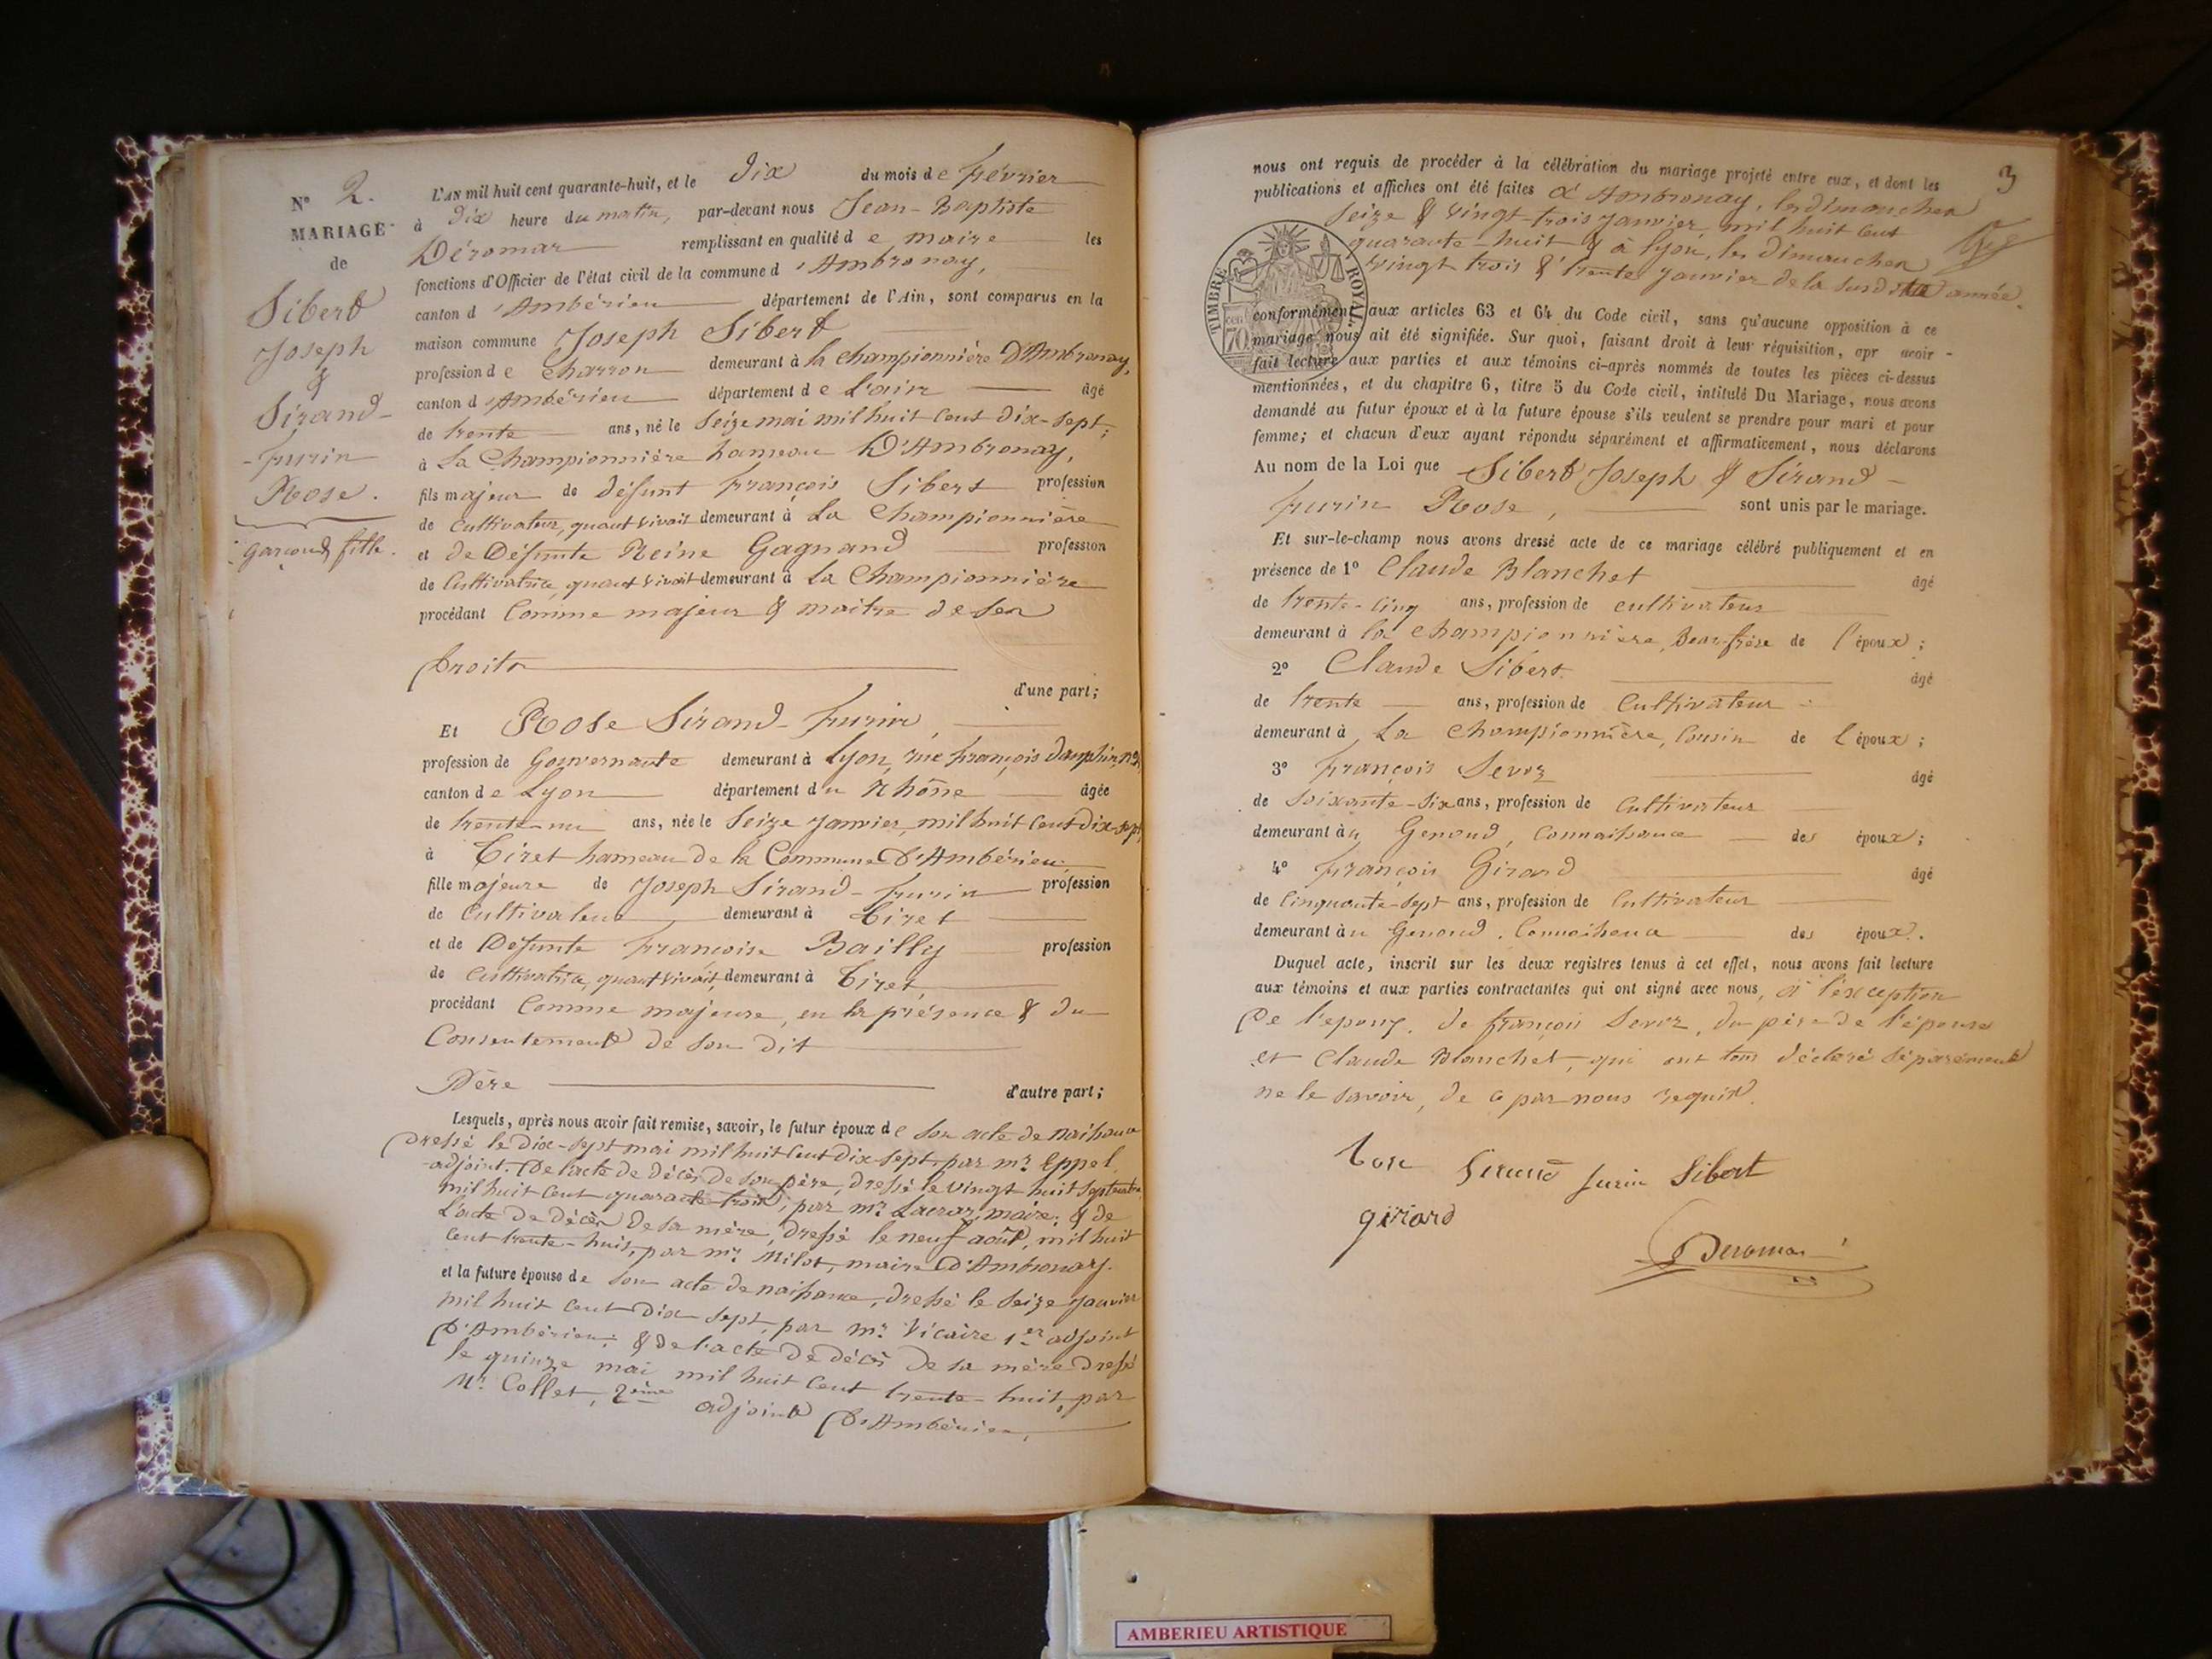 N° 2.
MARIAGE
de
Sibert
Joseph
&
Sirand-
-furin
Rose.
garçon & fille.
L'AN mil huit cent quarante-huit, et le dix du mois de février
à dix heure du matin, par-devant nous Jean-Baptiste
Déromas remplissant en qualité de maire les
fonctions d'Officier de l'état civil de la commune d'Ambronay,
canton d'Ambérieu département de l'Ain, sont comparus en la
maison commune Joseph Sibert
profession de charron demeurant à la championnière D'Ambronay,
canton d'Ambérieu département de L'ain âgé
de trente ans, né le seize mai mil huit cent dix-sept;
à La Championnière hameau D'Ambronay,
fils majeur de défunt françois Sibert profession
de cultivateur, quant vivait demeurant à La Championnière
et de Défunte Reine Gagnand profession
de Cultivatrice, quant vivait demeurant à La Championnière
procédant Comme majeur & maitre de ses
Droits
d'une part;
Et Rose Sirand-furin,
profession de Gouvernante demeurant à Lyon, rue françois dauphin, n°
canton de Lyon département du Rhône âgée
de trente-un ans, née le Seize Janvier, mil huit Cent dix-sept
à Tiret hameau de la Commune D'Ambérieu;
fille majeure de Joseph Sirand-furin profession
de Cultivateur demeurant à Tiret
et de Défunte françoise Bailly profession
de Cultivatrice, quant vivait, demeurant à Tiret,
procédant Comme majeure, en la présence & du
Consentement de son dit
Père
d'autre part;
Lesquels, après nous avoir fait remise, savoir, le futur époux de son acte de naissance
dressé le Dix-sept mai mil huit Cent Dix-sept, par mr Eppel,
adjoint. De l'acte de décès de son père, dressé le vingt huit septembre
mil huit Cent quarante trois, par mr Lacroz, maire; & de
L'acte de décès de sa mère, dressé le neuf août, mil huit
Cent trente-huit, par mr Milot, maire D'Ambronay.
et la future épouse de son acte de naissance, dressé le seize Janvier
mil huit Cent Dix sept, par mr Vicaire 1er adjoint
D'Ambérieu; & de l'acte de décès de sa mère dressé
le quinze mai mil huit Cent trente-huit, par
Mr Collet, 2ème adjoint D'Ambérieu,
3
nous ont requis de procéder à la célébration du mariage projeté entre eux, et dont les
publications et affiches ont été faites à Ambronay, les dimanches
seize & vingt-trois janvier mil huit cent
quarante-huit & à lyon, les Dimanches
vingt trois & trente janvier de la susdite année.
TIMBRE ROYAL
cen
70.
conformément aux articles 63 et 64 du Code civil, sans qu'aucune opposition à ce
mariage nous ait été signifiée. Sur quoi, faisant droit à leur réquisition, apr avoir
fait lecture aux parties et aux témoins ci-après nommés de toutes les pièces ci-dessus
mentionnées, et du chapitre 6, titre 5 du Code civil, intitulé Du Mariage, nous avons
demandé au futur époux et à la future épouse s'ils veulent se prendre pour mari et pour
femme; et chacun d'eux ayant répondu séparément et affirmativement, nous déclarons
Au nom de la Loi que Sibert Joseph & Sirand-
furin Rose, sont unis par le mariage.
Et sur-le-champ nous avons dressé acte de ce mariage célébré publiquement et en
présence de 1° Claude Blanchet âgé
de trente-cinq ans, profession de cultivateur
demeurant à la championnière, Beau-frère de l'époux;
2° Claude Sibert. âgé
de trente ans, profession de Cultivateur
demeurant à La Championnière, Cousin de l'époux;
3° françois Sevoz âgé
de soixante-six ans, profession de Cultivateur
demeurant au Genoud, Connaissance des époux;
4° françois Girard âgé
de cinquante-sept ans, profession de Cultivateur
demeurant au Genoud. Connaissance des époux.
Duquel acte, inscrit sur les deux registres tenus à cet effet, nous avons fait lecture
aux témoins et aux parties contractantes qui ont signé avec nous, à l'exception
De l'epoux. de françois Sevoz, du père de l'épouse
et Claude Blanchet, qui ont tous déclaré séparément
ne le savoir, de ce par nous requis.
Rose Sirand furin Sibert
girard
Deromas
AMBERIEU ARTISTIQUE